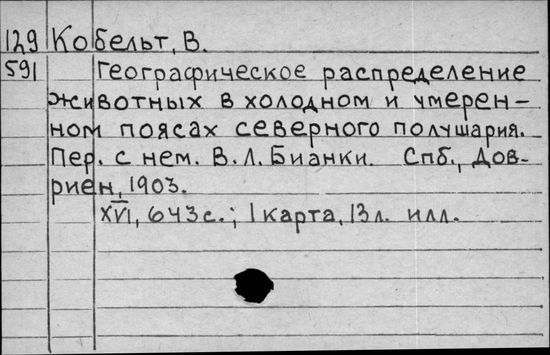 129 Кобельт, В.
591 Географическое распределение
животных в холодном и умерен-
ном поясах северного полушария.
Пер. с нем. В.Л. Бианки. Спб., Дов-
риен, 1903.
XVI, 643с.; 1 карта, 13л. илл.